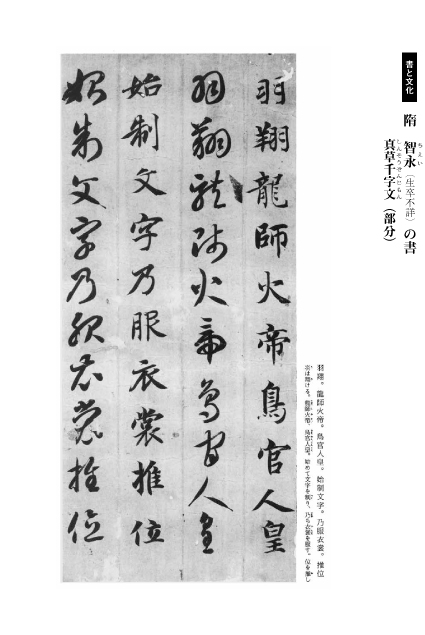 書と文化
隋 智永（生卒不詳）の書
ちえい
真草千字文（部分）
しんそうせんじもん
羽翔。龍師火帝。鳥官人皇。始制文字。乃服衣裳。推位
羽は翔ける。龍師火帝、鳥官人皇。始めて文字を制り、乃ち衣裳を服す。位を推し
羽翔龍師火帝鳥官人皇
羽翔龍師火帝鳥官人皇
始制文字乃服衣裳推位
始制文字乃服衣裳推位